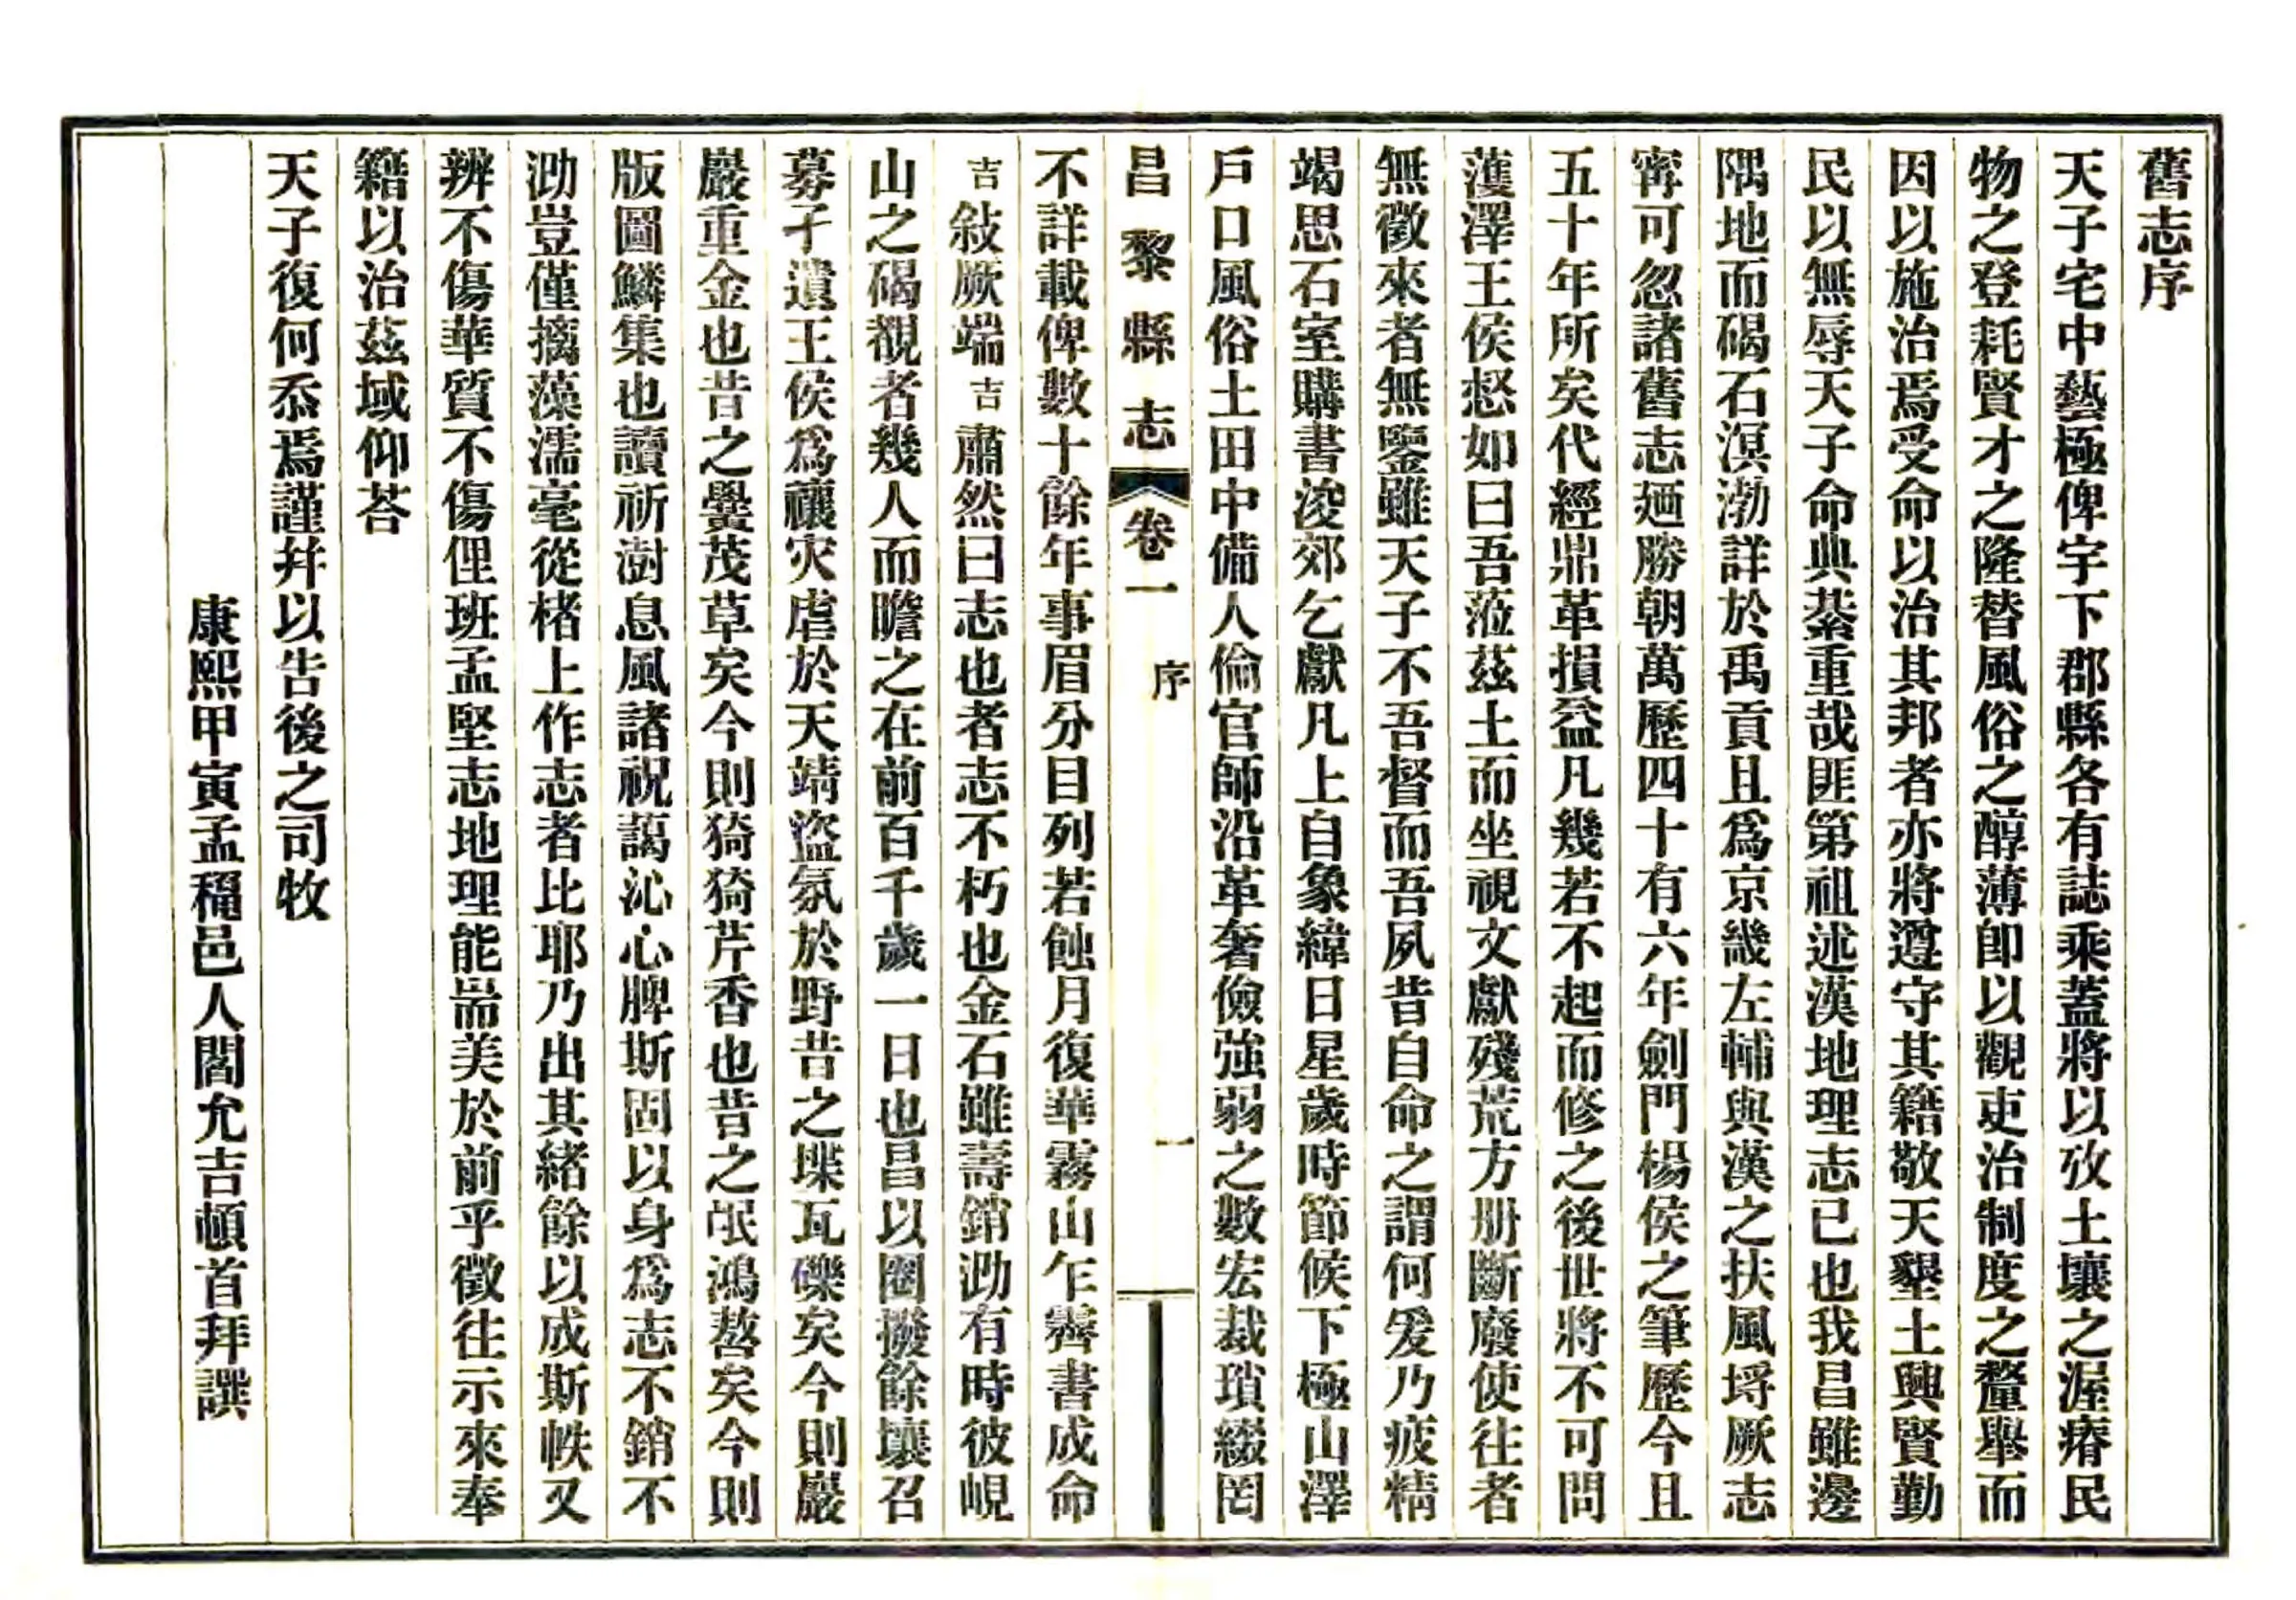 舊志序
天子宅中藝極俾宇下郡縣各有誌乘蓋將以攷土壤之渥瘠民
物之登耗賢才之隆替風俗之醇薄卽以觀吏治制度之釐舉而
因以施治焉受命以治其邦者亦將遵守其籍敬天墾土興賢勤
民以無辱天子命典綦重哉匪第祖述漢地理志已也我昌雖邊
隅地而碣石溟渤詳於禹貢且爲京畿左輔與漢之扶風埒厥志
寗可忽諸舊志廼勝朝萬歷四十有六年劍門楊侯之筆歷今且
五十年所矣代經鼎革損益凡幾若不起而修之後世將不可問
濩澤王侯惄如曰吾蒞茲土而坐視文獻殘荒方册斷廢使往者
無徵來者無鑒雖天子不吾督而吾夙昔自命之謂何爰乃疲精
竭思石室購書浚郊乞獻凡上自象緯日星歲時節候下極山澤
戶口風俗土田中備人倫官師沿革奢儉強弱之數宏裁瑣綴罔
昌黎縣志 卷一 序 一
不詳載俾數十餘年事眉分目列若蝕月復華霧山乍霽書成命
吉敍厥端吉肅然曰志也者志不朽也金石雖壽銷泐有時彼峴
山之碣覩者幾人而瞻之在前百千歲一日也昌以圈撥餘壤召
募孑遺王侯爲禳灾虐於天靖盜氛於野昔之堞瓦礫矣今則巖
巖重金也昔之黌茂草矣今則猗猗芹香也昔之氓鴻嗸矣今則
版圖鱗集也讀祈澍息風諸祝藹沁心脾斯固以身爲志不銷不
泐豈僅摛藻濡毫從楮上作志者比耶乃出其緒餘以成斯帙又
辨不傷華質不傷俚班孟堅志地理能耑美於前乎徵往示來奉
籍以治茲域仰荅
天子復何忝焉謹幷以告後之司牧
康熙甲寅孟穐邑人閻允吉頓首拜譔